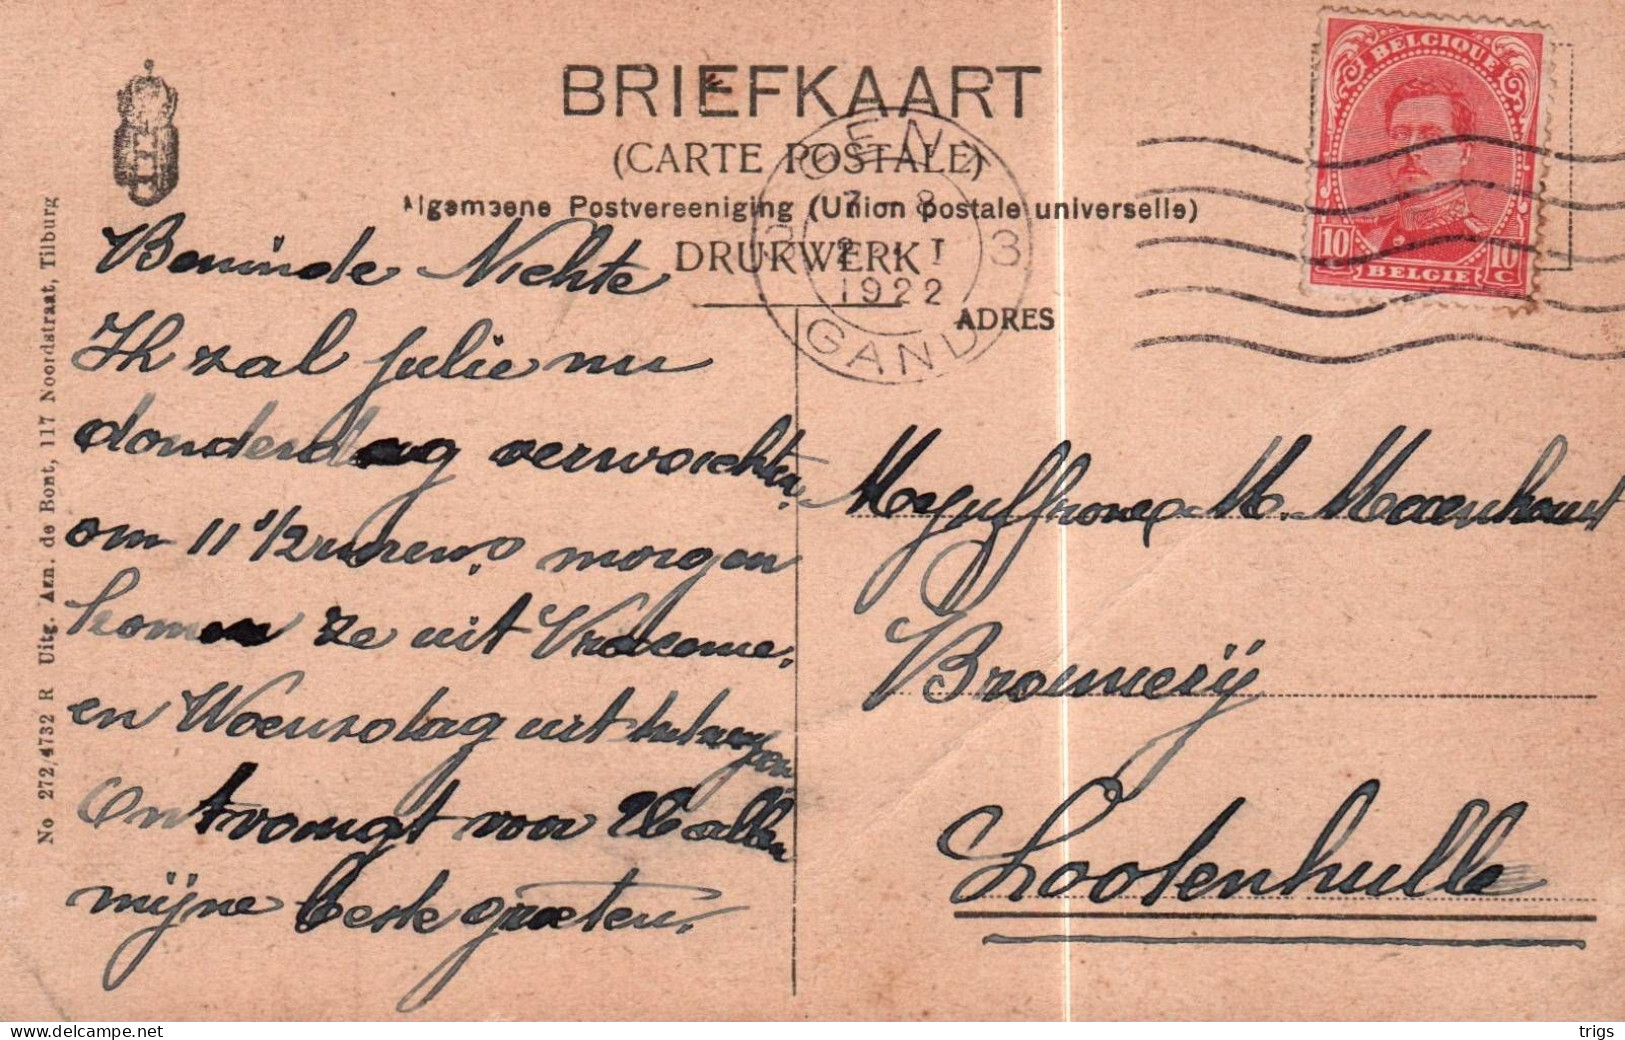 BRIEFKAART
(CARTE POSTALE)
Algemeene Postvereeniging (Union postale universelle)
DRUKWERK
ADRES
BELGIQUE
10 10
C C
BELGIE
GENT
7 - 8
I
1922
3 3
GAND
No 272/4732 R Uitg. Azn. de Bont, 117 Noordstraat, Tilburg
Beminde Nichte
Ik zal julie nu
donderdag verwachten
om 11 1/2 uren. morgen
komen ze uit
en Woensdag uit
Ontvangt voor U allen
mijne beste groeten.
Mejuffrouw M. Maenhout
Brouwerij
Lootenhulle
trigs